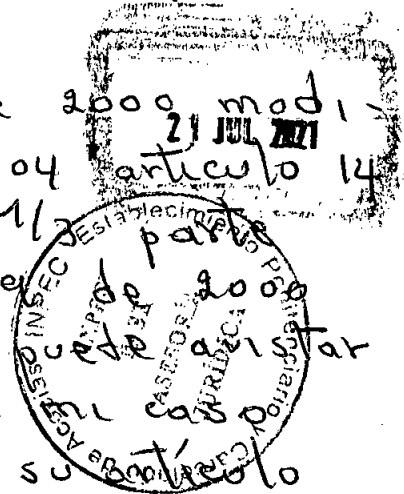 2000 modi-
21 JUL 2021
04 artículo 14
1/3 parte
de 2000
puede ajustar
mi caso
su artículo
Establecimiento Penitenciario
INPEC
ASESORIA
JURÍDICA